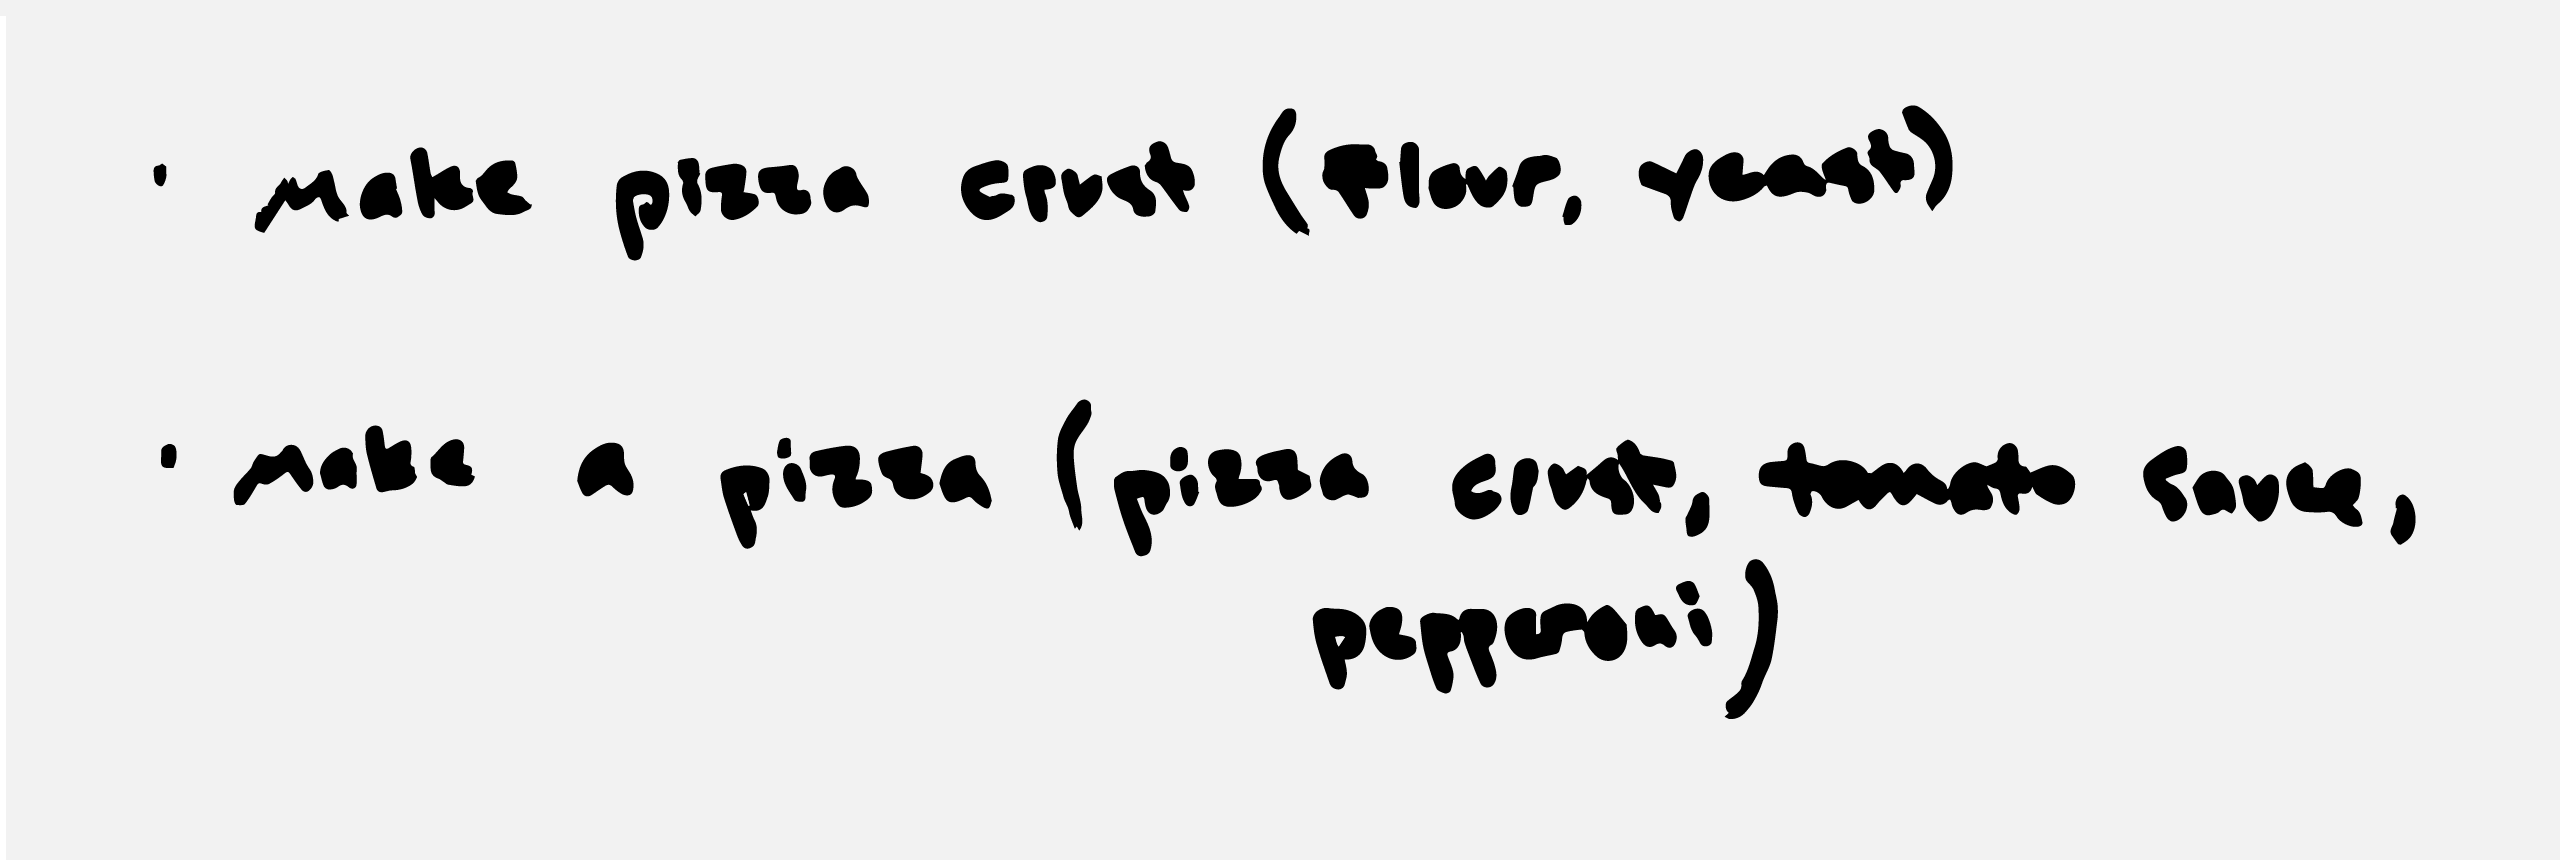 · make pizza crust (flour, yeast)
· make a pizza (pizza crust, tomato sauce,
pepperoni)